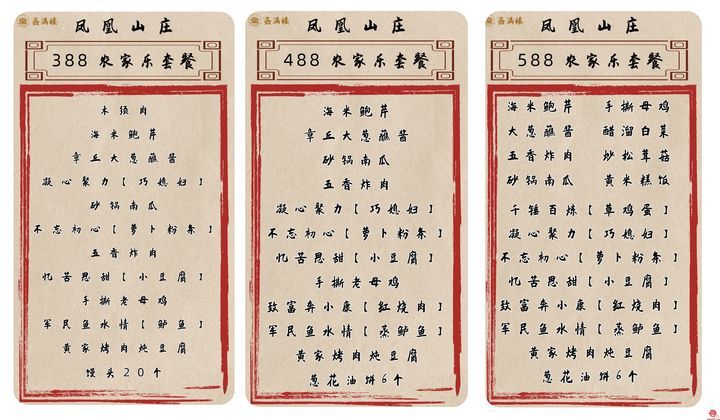 鑫满楼
凤凰山庄
388 农家乐套餐
木须肉
海米鲍芹
章丘大葱蘸酱
凝心聚力【巧媳妇】
砂锅南瓜
不忘初心【萝卜粉条】
五香炸肉
忆苦思甜【小豆腐】
手撕老母鸡
军民鱼水情【鲈鱼】
黄家烤肉炖豆腐
馒头20个
鑫满楼
凤凰山庄
488 农家乐套餐
海米鲍芹
章丘大葱蘸酱
砂锅南瓜
五香炸肉
凝心聚力【巧媳妇】
不忘初心【萝卜粉条】
忆苦思甜【小豆腐】
手撕老母鸡
致富奔小康【红烧肉】
军民鱼水情【蒸鲈鱼】
黄家烤肉炖豆腐
葱花油饼6个
鑫满楼
凤凰山庄
588 农家乐套餐
海米鲍芹 手撕母鸡
大葱蘸酱 醋溜白菜
五香炸肉 炒松茸菇
砂锅南瓜 黄米糕饭
千锤百炼【草鸡蛋】
凝心聚力【巧媳妇】
不忘初心【萝卜粉条】
忆苦思甜【小豆腐】
致富奔小康【红烧肉】
军民鱼水情【蒸鲈鱼】
黄家烤肉炖豆腐
葱花油饼6个